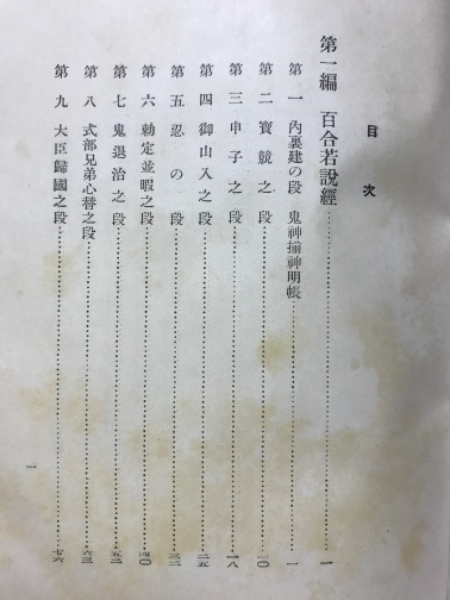 目次
第一編 百合若說經……一
第一 內裏建の段 鬼神揃神明帳……一
第二 寶競之段……一〇
第三 申子之段……一八
第四 御山入之段……二五
第五 忍の段……三二
第六 勅定並暇之段……四〇
第七 鬼退治之段……五二
第八 式部兄弟心替之段……六三
第九 大臣歸國之段……七六
一